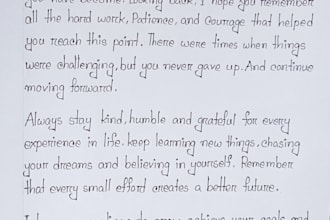 you have become. Looking back, I hope you remember
all the hard work, Patience, and Courage that helped
you reach this point. There were times when things
were challenging, but you never gave up. And continue
moving forward.
Always stay kind, humble and grateful for every
experience in life. keep learning new things, chasing
your dreams and believing in yourself. Remember
that every small effort creates a better future.